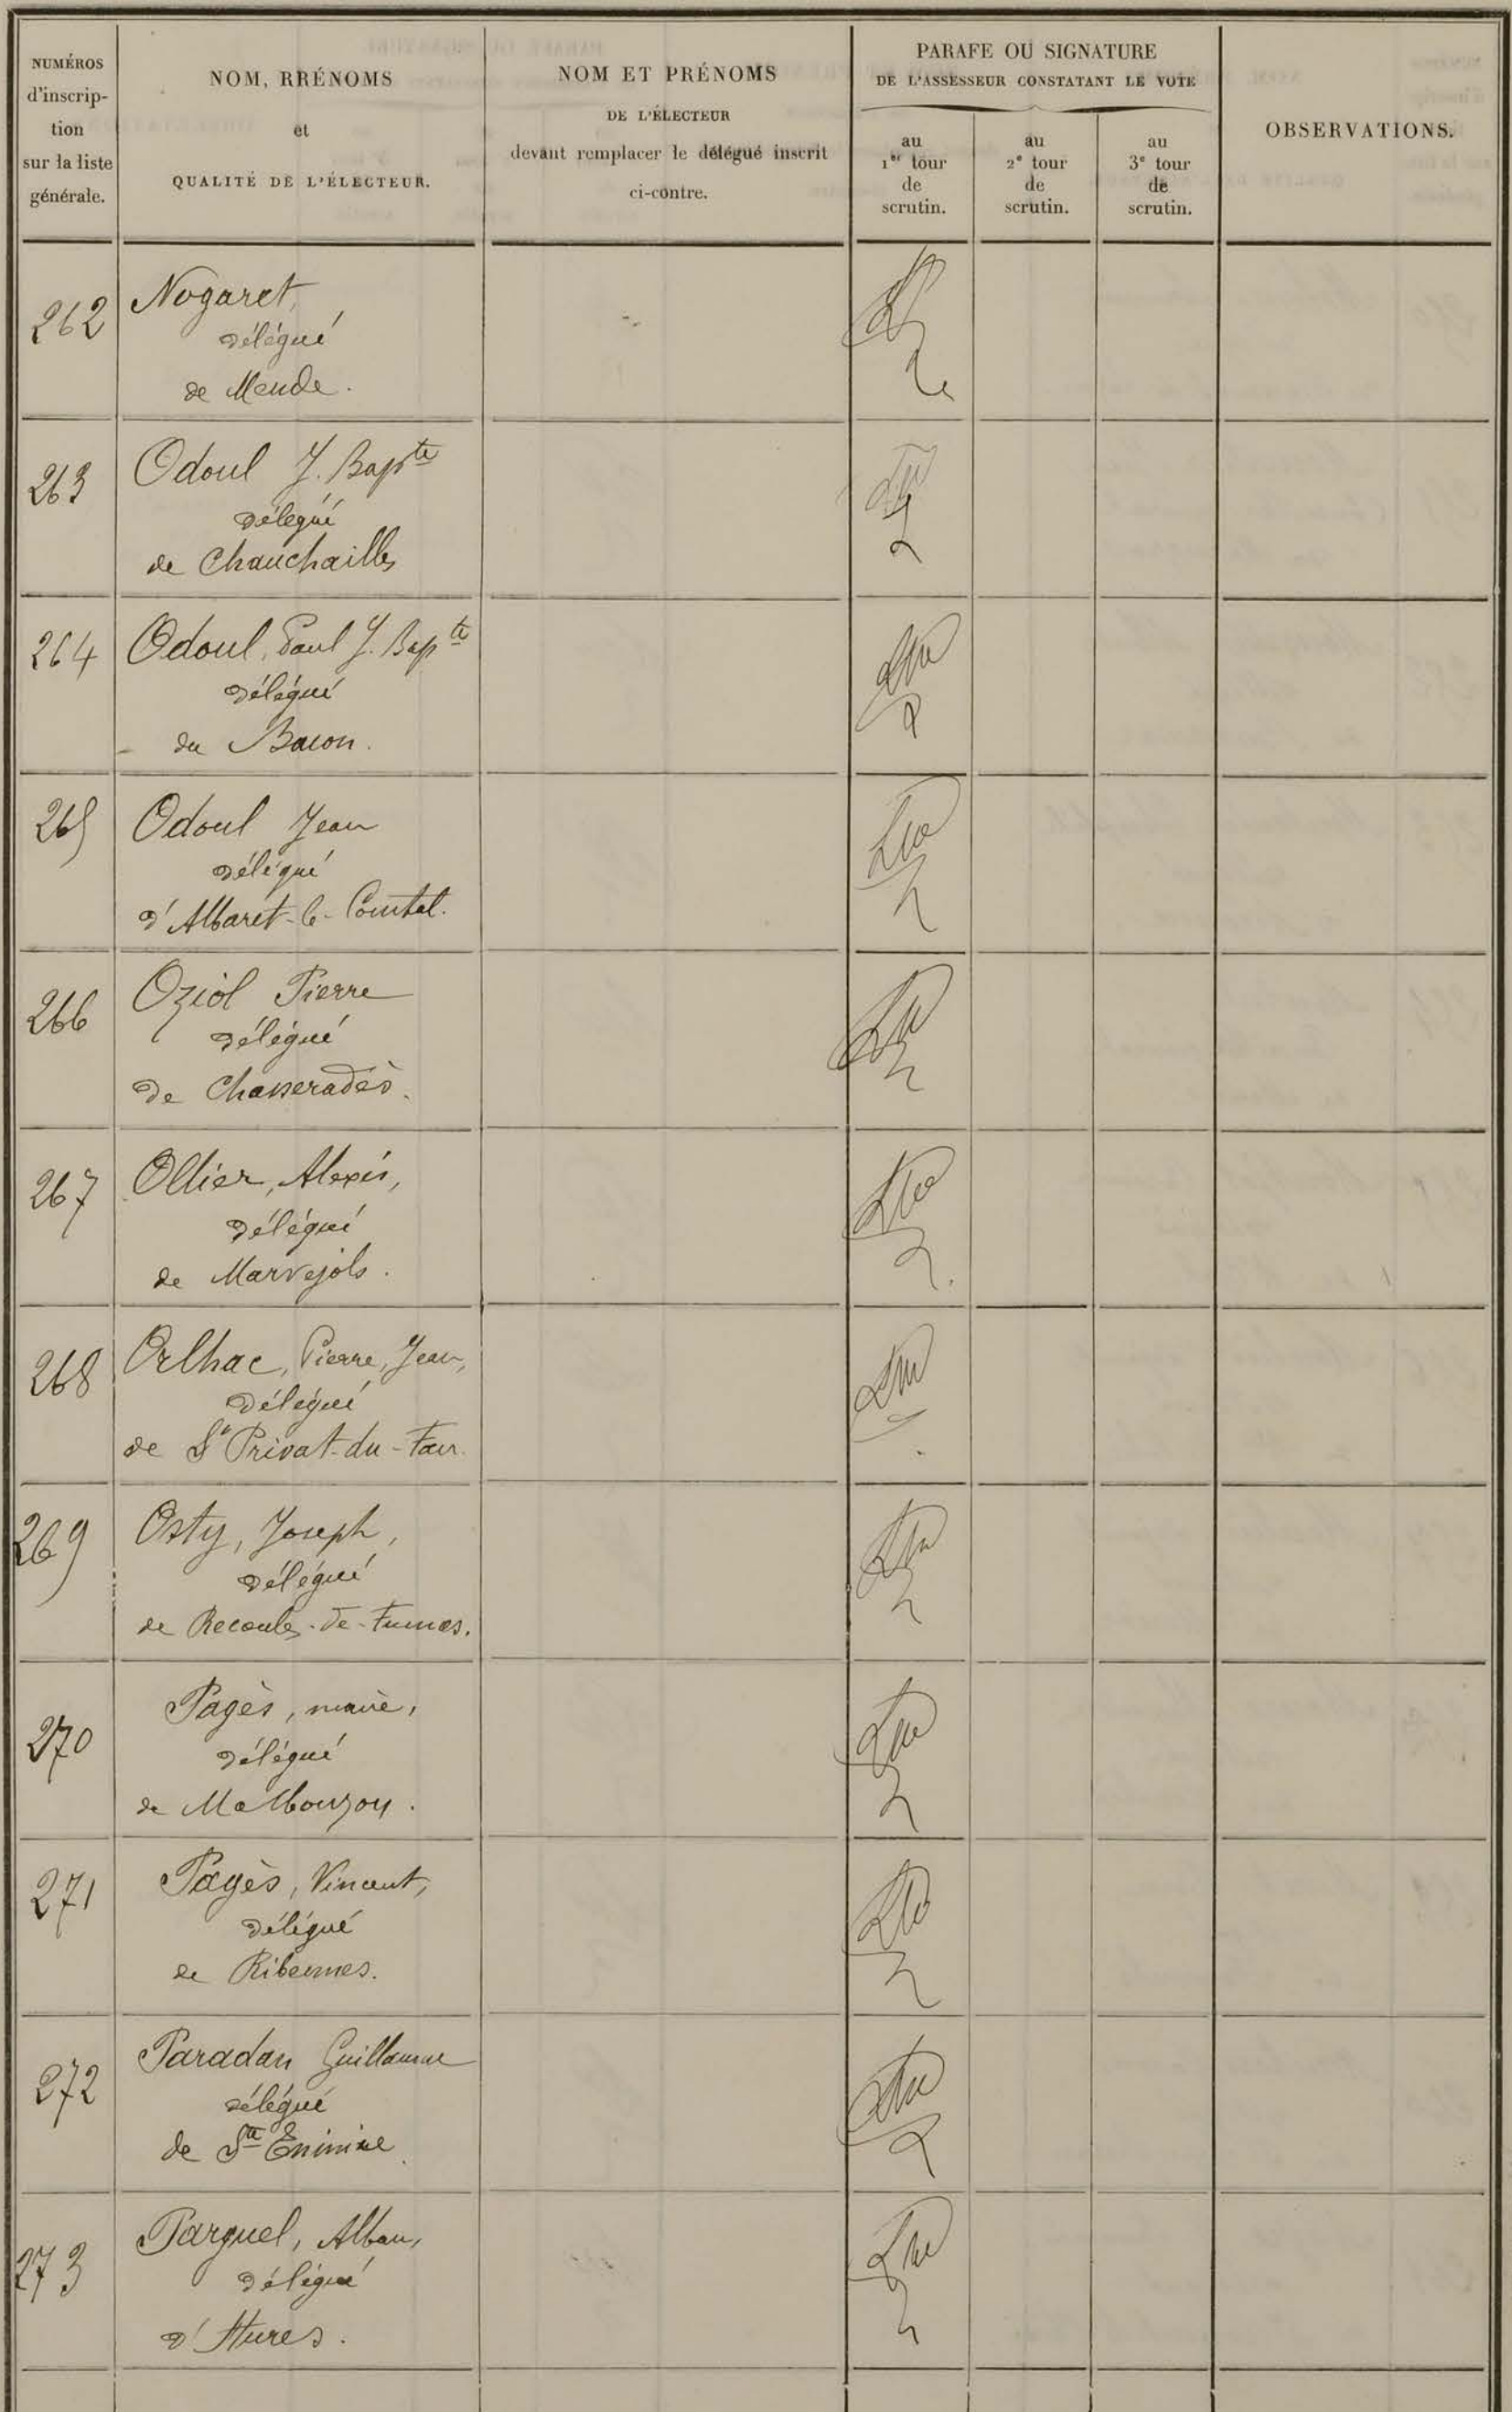 NUMÉROS
d'inscrip-
tion
sur la liste
générale.
NOM, RRÉNOMS
et
QUALITÉ DE L'ÉLECTEUR.
NOM ET PRÉNOMS
DE L'ÉLECTEUR
devant remplacer le délégué inscrit
ci-contre.
PARAFE OU SIGNATURE
DE L'ASSESSEUR CONSTATANT LE VOTE
au
1er tour
de
scrutin.
au
2e tour
de
scrutin.
au
3e tour
de
scrutin.
OBSERVATIONS.
262
Nogaret,
délégué
de Mende.
263
Odoul J. Bapte
délégué
de Chauchailles
264
Odoul, Paul J. Bapte
délégué
du Bacon.
265
Odoul Jean
délégué
d'Albaret-le-Comtal.
266
Oziol Pierre
délégué
de Chasseradès.
267
Ollier, Alexis,
délégué
de Marvejols.
268
Orlhac, Pierre, Jean,
délégué
de St Privat-du-Fau.
269
Osty, Joseph,
délégué
de Recoules-de-Fumas.
270
Pagès, maire,
délégué
de Malbouzon.
271
Pagès, Vincent,
délégué
de Ribennes.
272
Paradan Guillaume
délégué
de Ste Enimie
273
Parguel, Alban,
délégué
d'Hures.